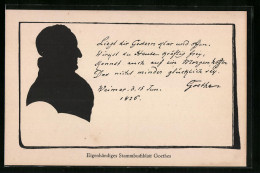 Liegt dir Gestern klar und offen,
Wirkst du Heute kräftig frey,
Kannst auch auf ein Morgen hoffen
Das nicht minder glücklich sey.
Weimar d. 15 Jun. Goethe
1826.
Eigenhändiges Stammbuchblatt Goethes